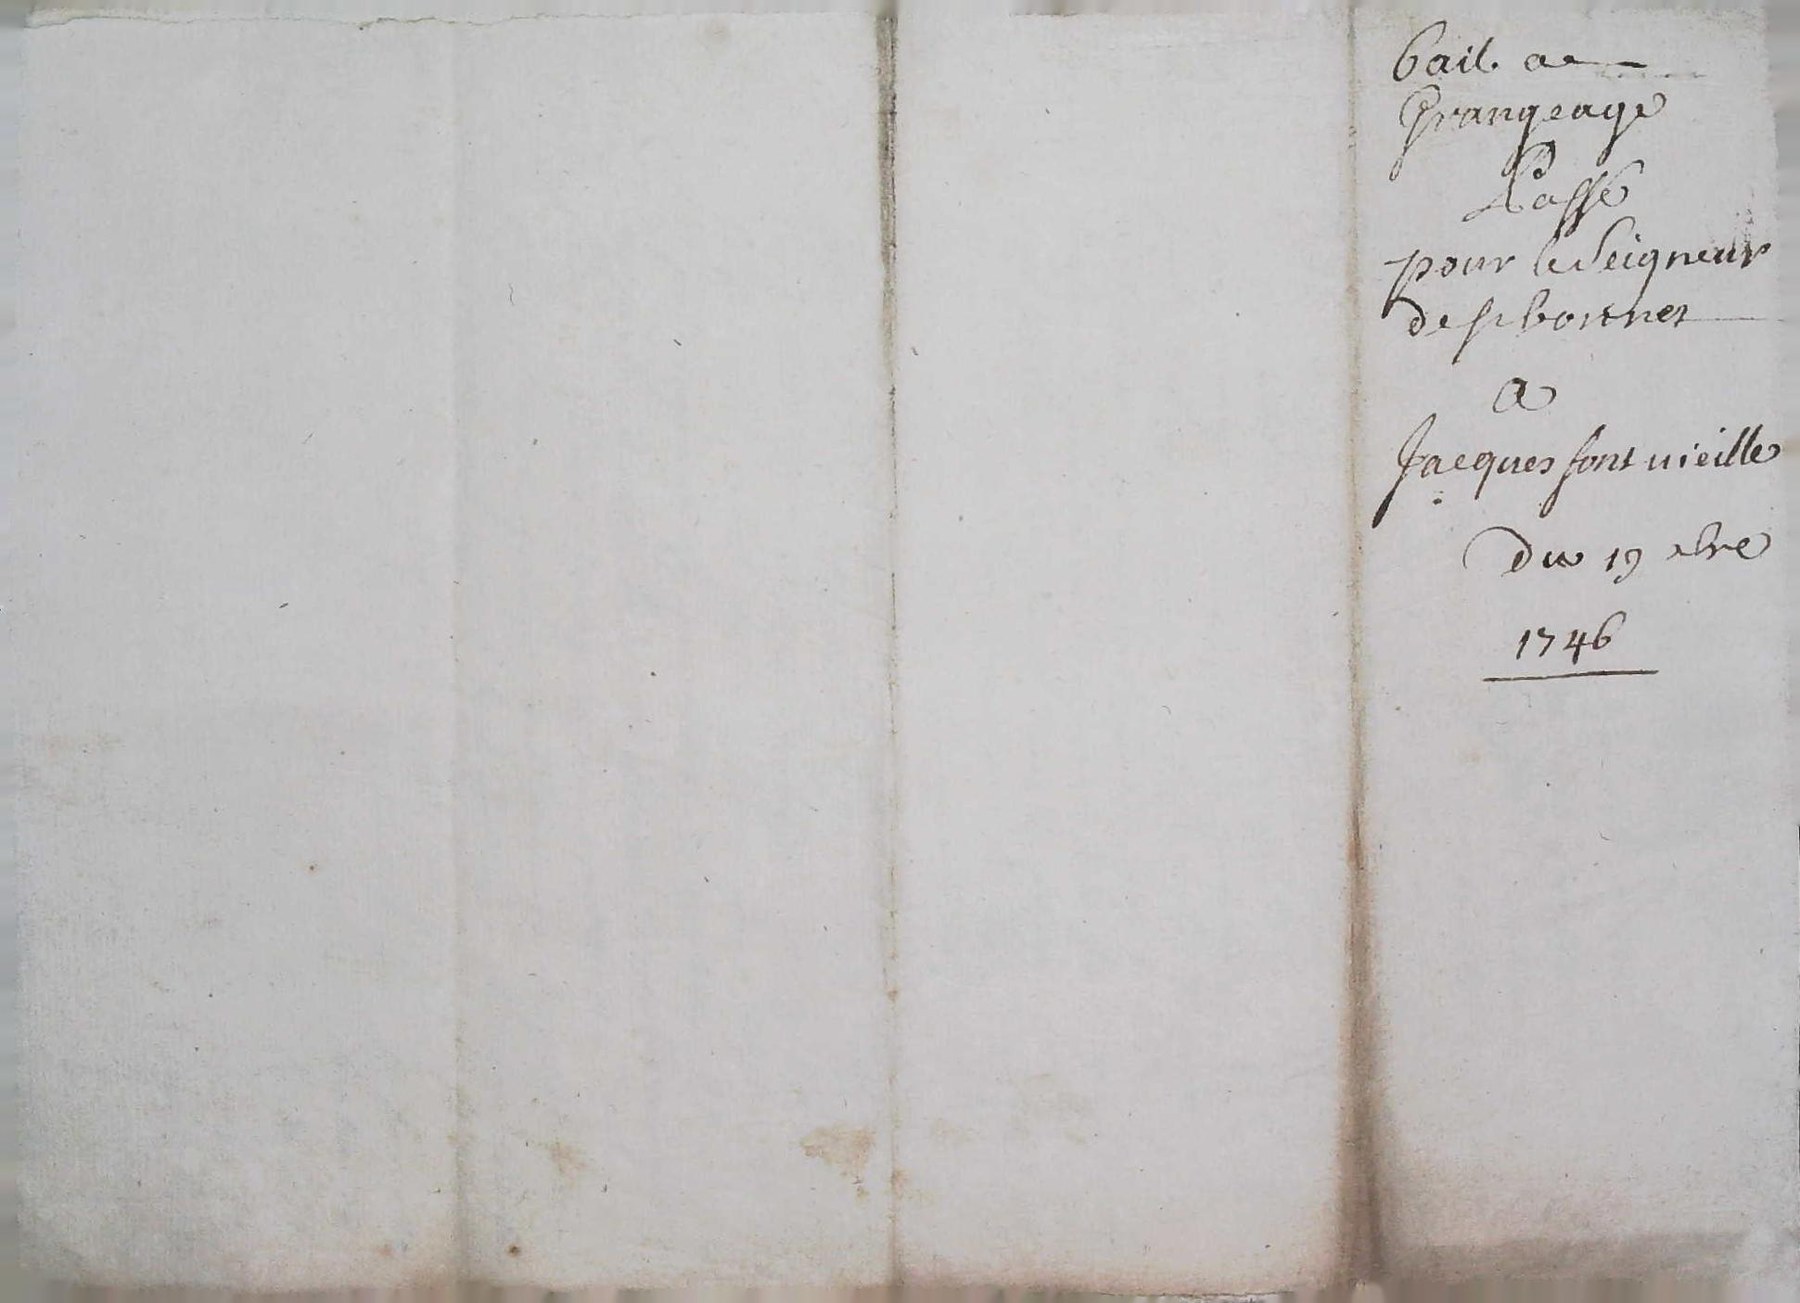 bail a
Grangeage
Passé
pour le Seigneur
de st bonnet
a
Jacques font vieille
Du 19
1746